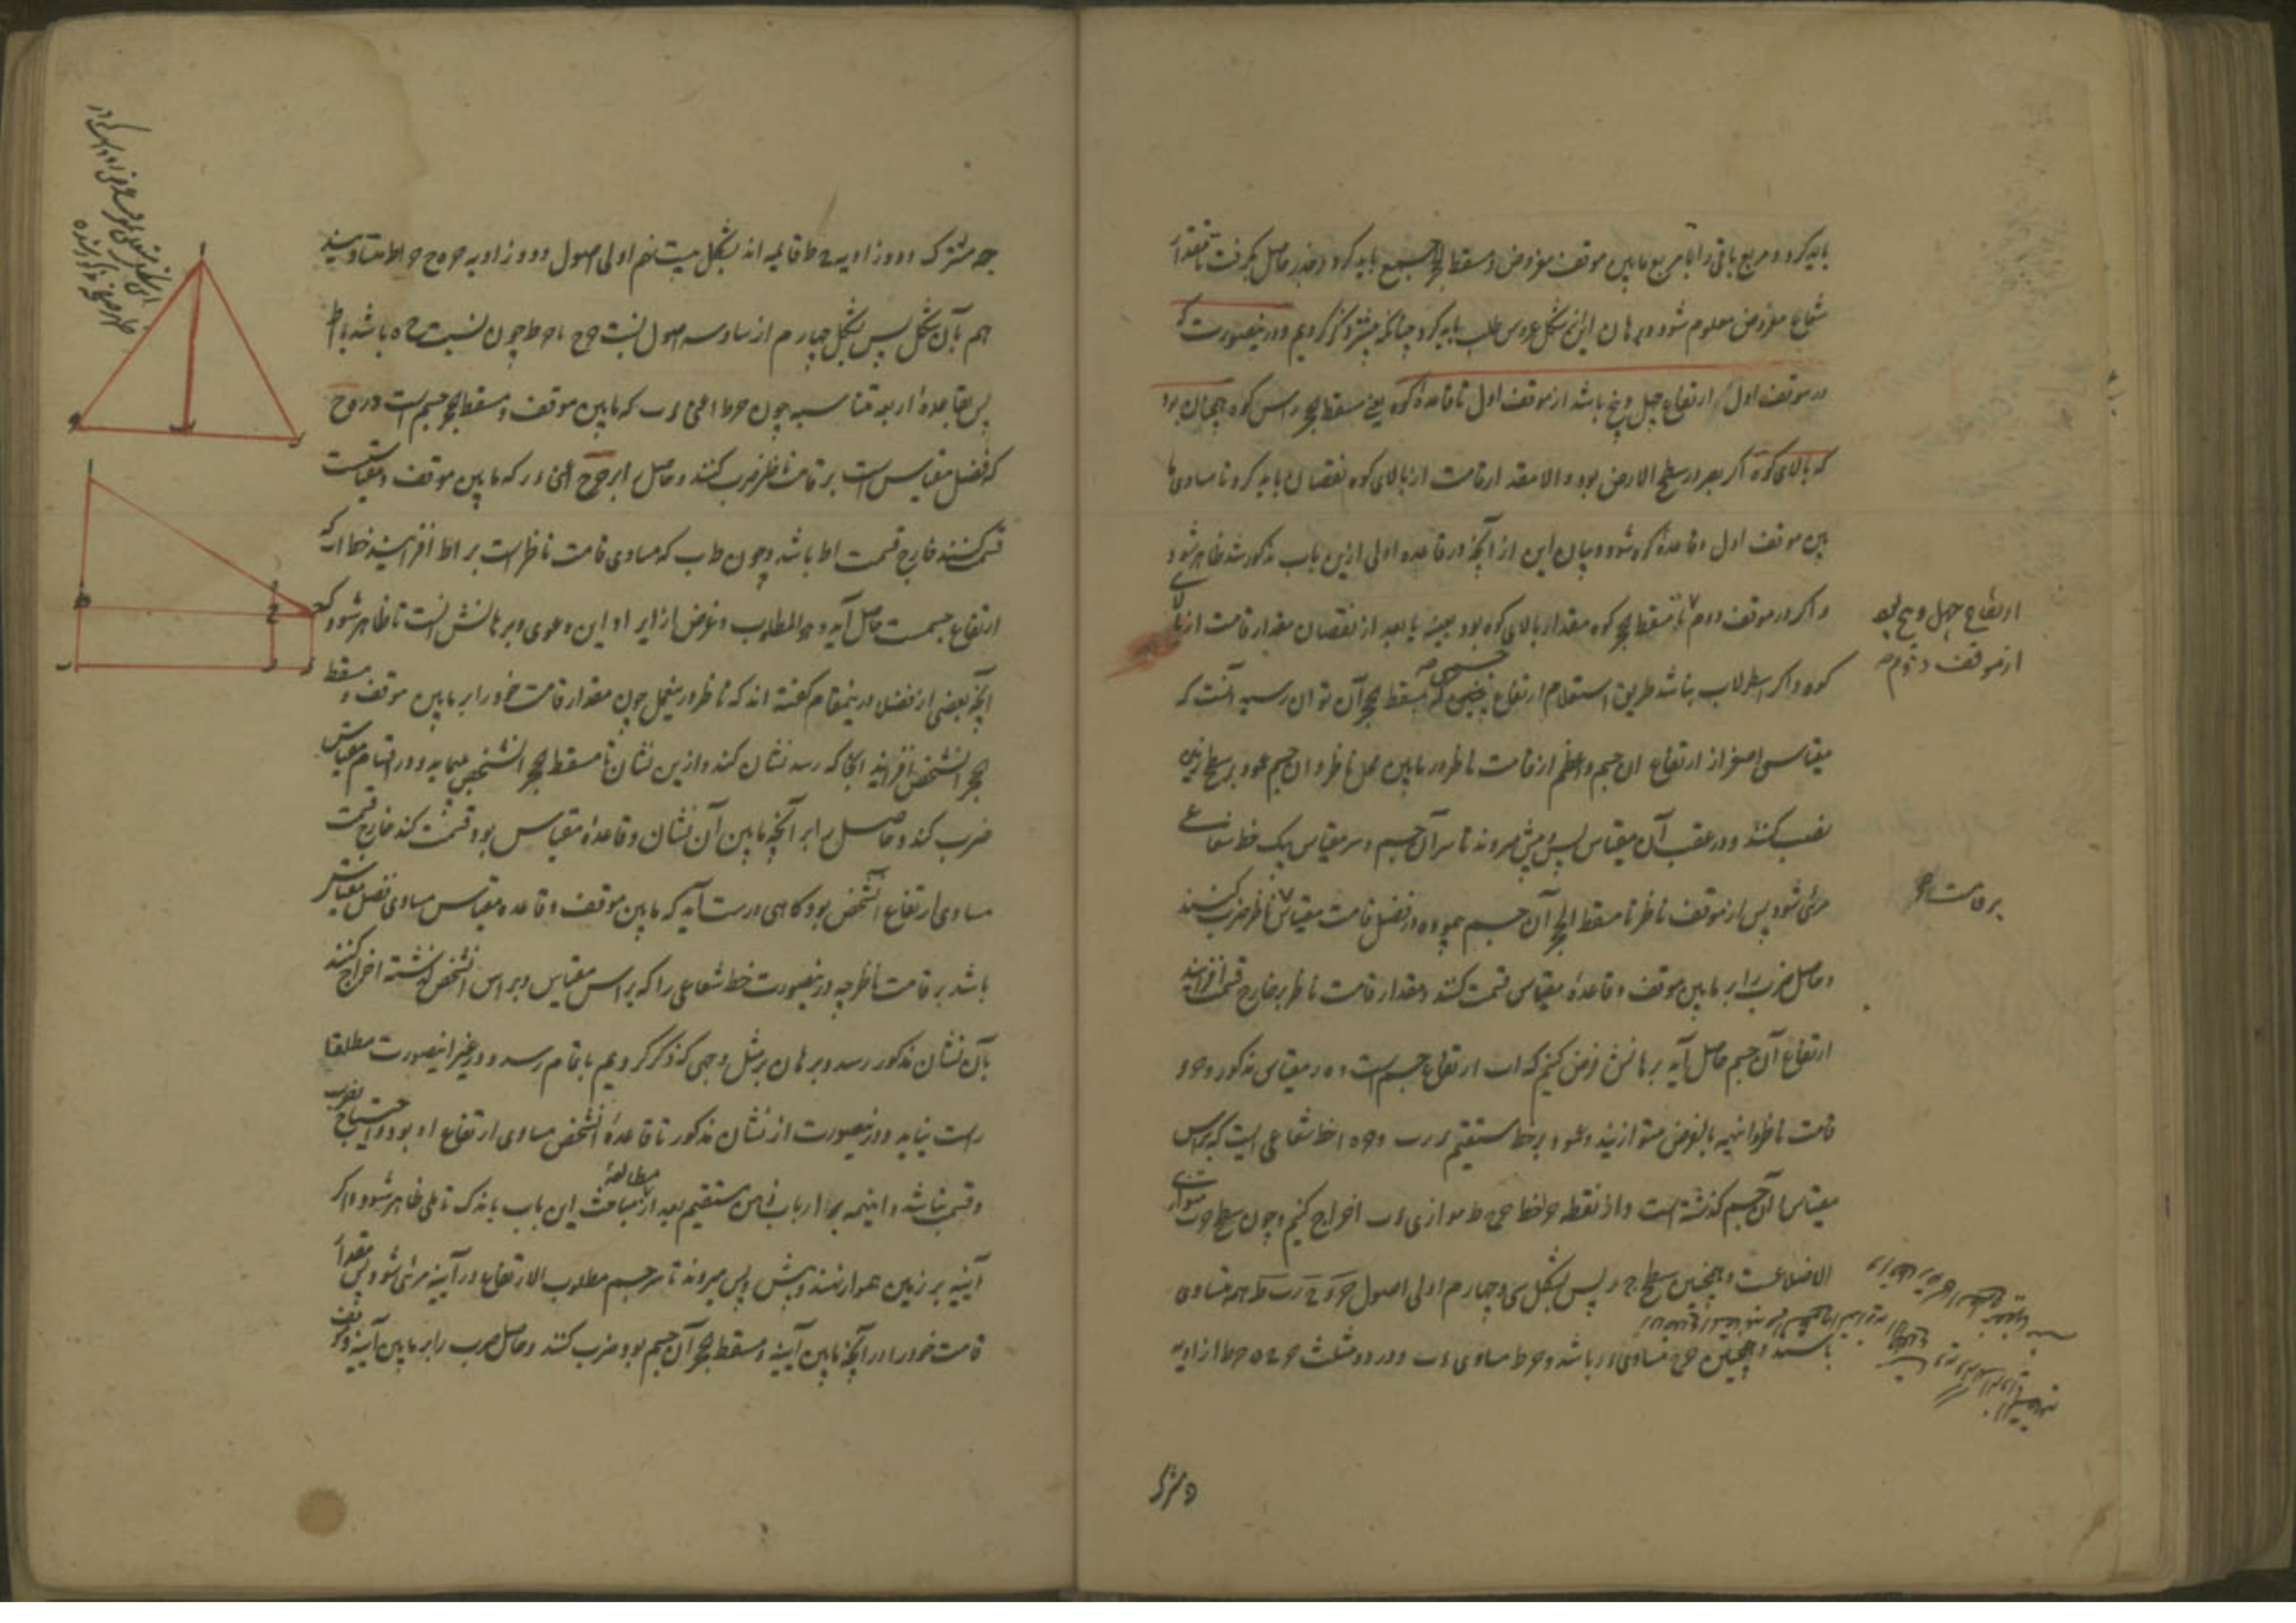 باید کرد و مربع باقی را با مربع مابین موقف مفروض و مسقط الحجر جمع باید کرد و جذر حاصل بگرفت تا مقدار
شعاع مفروض معلوم شود و برهان این نیز شکل عروس طلب باید کرد چنانکه پیشتر ذکر کردیم و درینصورت که
در موقف اول ارتفاع چهل و پنج باشد از موقف اول تا قاعدهٔ کوه یعنی مسقط حجر راس کوه همچنان بود
که بالای کوه اگر بصر در سطح الارض بود و الا مقدار قامت از بالای کوه نقصان باید کرد تا مساوی ما
بین موقف اول و قاعدهٔ کوه شود و بیان این از آنچه در قاعده اولی ازین باب مذکور شد ظاهر شود
و اگر در موقف دوم تا مسقط حجر کوه مقدار بالای کوه بود بعینه یا بعد از نقصان مقدار قامت از بالای
کوه و اگر اسطرلاب نباشد طریق استعلام ارتفاع جسمی که بمسقط حجر آن توان رسید آنست که
مقیاسی اصغر از ارتفاع ان جسم و اعظم از قامت ناظر در مابین محل ناظر و ان جسم عمود بر سطح زمین
نصب کنند و در عقب آن مقیاس پس و پیش میروند تا سر آن جسم و سر مقیاس بیک خط شعاعی
مرئی شود پس از موقف ناظر تا مسقط الحجر آن جسم پیموده در فضل قامت مقیاس ناظر ضرب کنند
و حاصل ضرب را بر مابین موقف و قاعدهٔ مقیاس قسمت کنند و مقدار قامت ناظر بر خارج قسمت افزایند
ارتفاع آن جسم حاصل آید برهانش فرض کنیم که اب ارتفاع جسم است و ه ر مقیاس مذکور و ح و
قامت ناظر و اینهمه بالفرض متوازیند و عمود بر خط مستقیم ء ر ب و ح ه ا خط شعاعی است که براس
مقیاس آن جسم گذشته است و از نقطه ح خط ح ح ط موازی ء ب اخراج کنیم و چون سطح ح ب متوازی
الاضلاعست و همچنین سطح ح ر پس بشکل سی و چهارم اولی اصول ح ء ح ر ب ط همه متساوی
باشند و همچنین ح ح مساوی ء ر باشد و ح ط مساوی ء ب و در دو مثلث ح ح ه ح ط ا زاویه
ارتفاع چهل و پنج بود
از موقف دوم
بر قامت
مشترک
ح مشترک و دو زاویه ح ط قائمه اند بشکل بیست نهم اولی اصول و دو زاویه ح ه ح ح ا ط متساویند
هم بآن شکل پس بشکل چهارم از سادسه اصول نسبت ح ح با ح ط چون نسبت ح ه باشد با ا ط
پس بقاعدهٔ اربعه متناسبه چون ح ط اعنی ء ب که مابین موقف و مسقط حجر جسم است در ه ح
که فضل مقیاس است بر قامت ناظر ضرب کنند و حاصل را بر ح ح اعنی ء ر که مابین موقف و مقیاست
قسمت کنند خارج قسمت ا ط باشد و چون ط ب که مساوی قامت ناظر است بر ا ط افزایند خط ا ب که
ارتفاع جسمست حاصل آید و هو المطلوب و غرض از ایراد این دعوی و برهانش آنست تا ظاهر شود که
آنچه بعضی از فضلا درینمقام گفته اند که ناظر درینمحل چون مقدار قامت خود را بر مابین موقف و مسقط
حجر الشخص افزاید آنجا که رسد نشان کند و ازین نشان تا مسقط حجر الشخص پیماید و در تمام مقیاس
ضرب کند و حاصل را بر آنچه مابین آن نشان و قاعدهٔ مقیاس بود قسمت کند خارج قسمت
مساوی ارتفاع الشخص بود گاهی درست آید که مابین موقف و قاعده مقیاس مساوی فضل مقیاس
باشد بر قامت ناظر چه درینصورت خط شعاعی را که براس مقیاس و براس الشخص گذشته اخراج کنند
بآن نشان مذکور رسد و برهان بر مثل وجهی که ذکر کردیم باتمام رسد و در غیر اینصورت مطلقا
راست نیاید و درینصورت از نشان مذکور تا قاعدهٔ الشخص مساوی ارتفاع او بود و احتیاج بضرب
و قسمت نباشد و اینهمه بر ارباب ذهن مستقیم بعد از مطالعهٔ مباحث این باب باندک تاملی ظاهر شود و اگر
آینه بر زمین هموار نهند و پیش و پس میروند تا سر جسم مطلوب الارتفاع در آینه مرئی شود پس مقدار
قامت خود را در آنچه مابین آینه و مسقط حجر آن جسم بود ضرب کنند و حاصل ضرب را بر مابین آینه و موقف